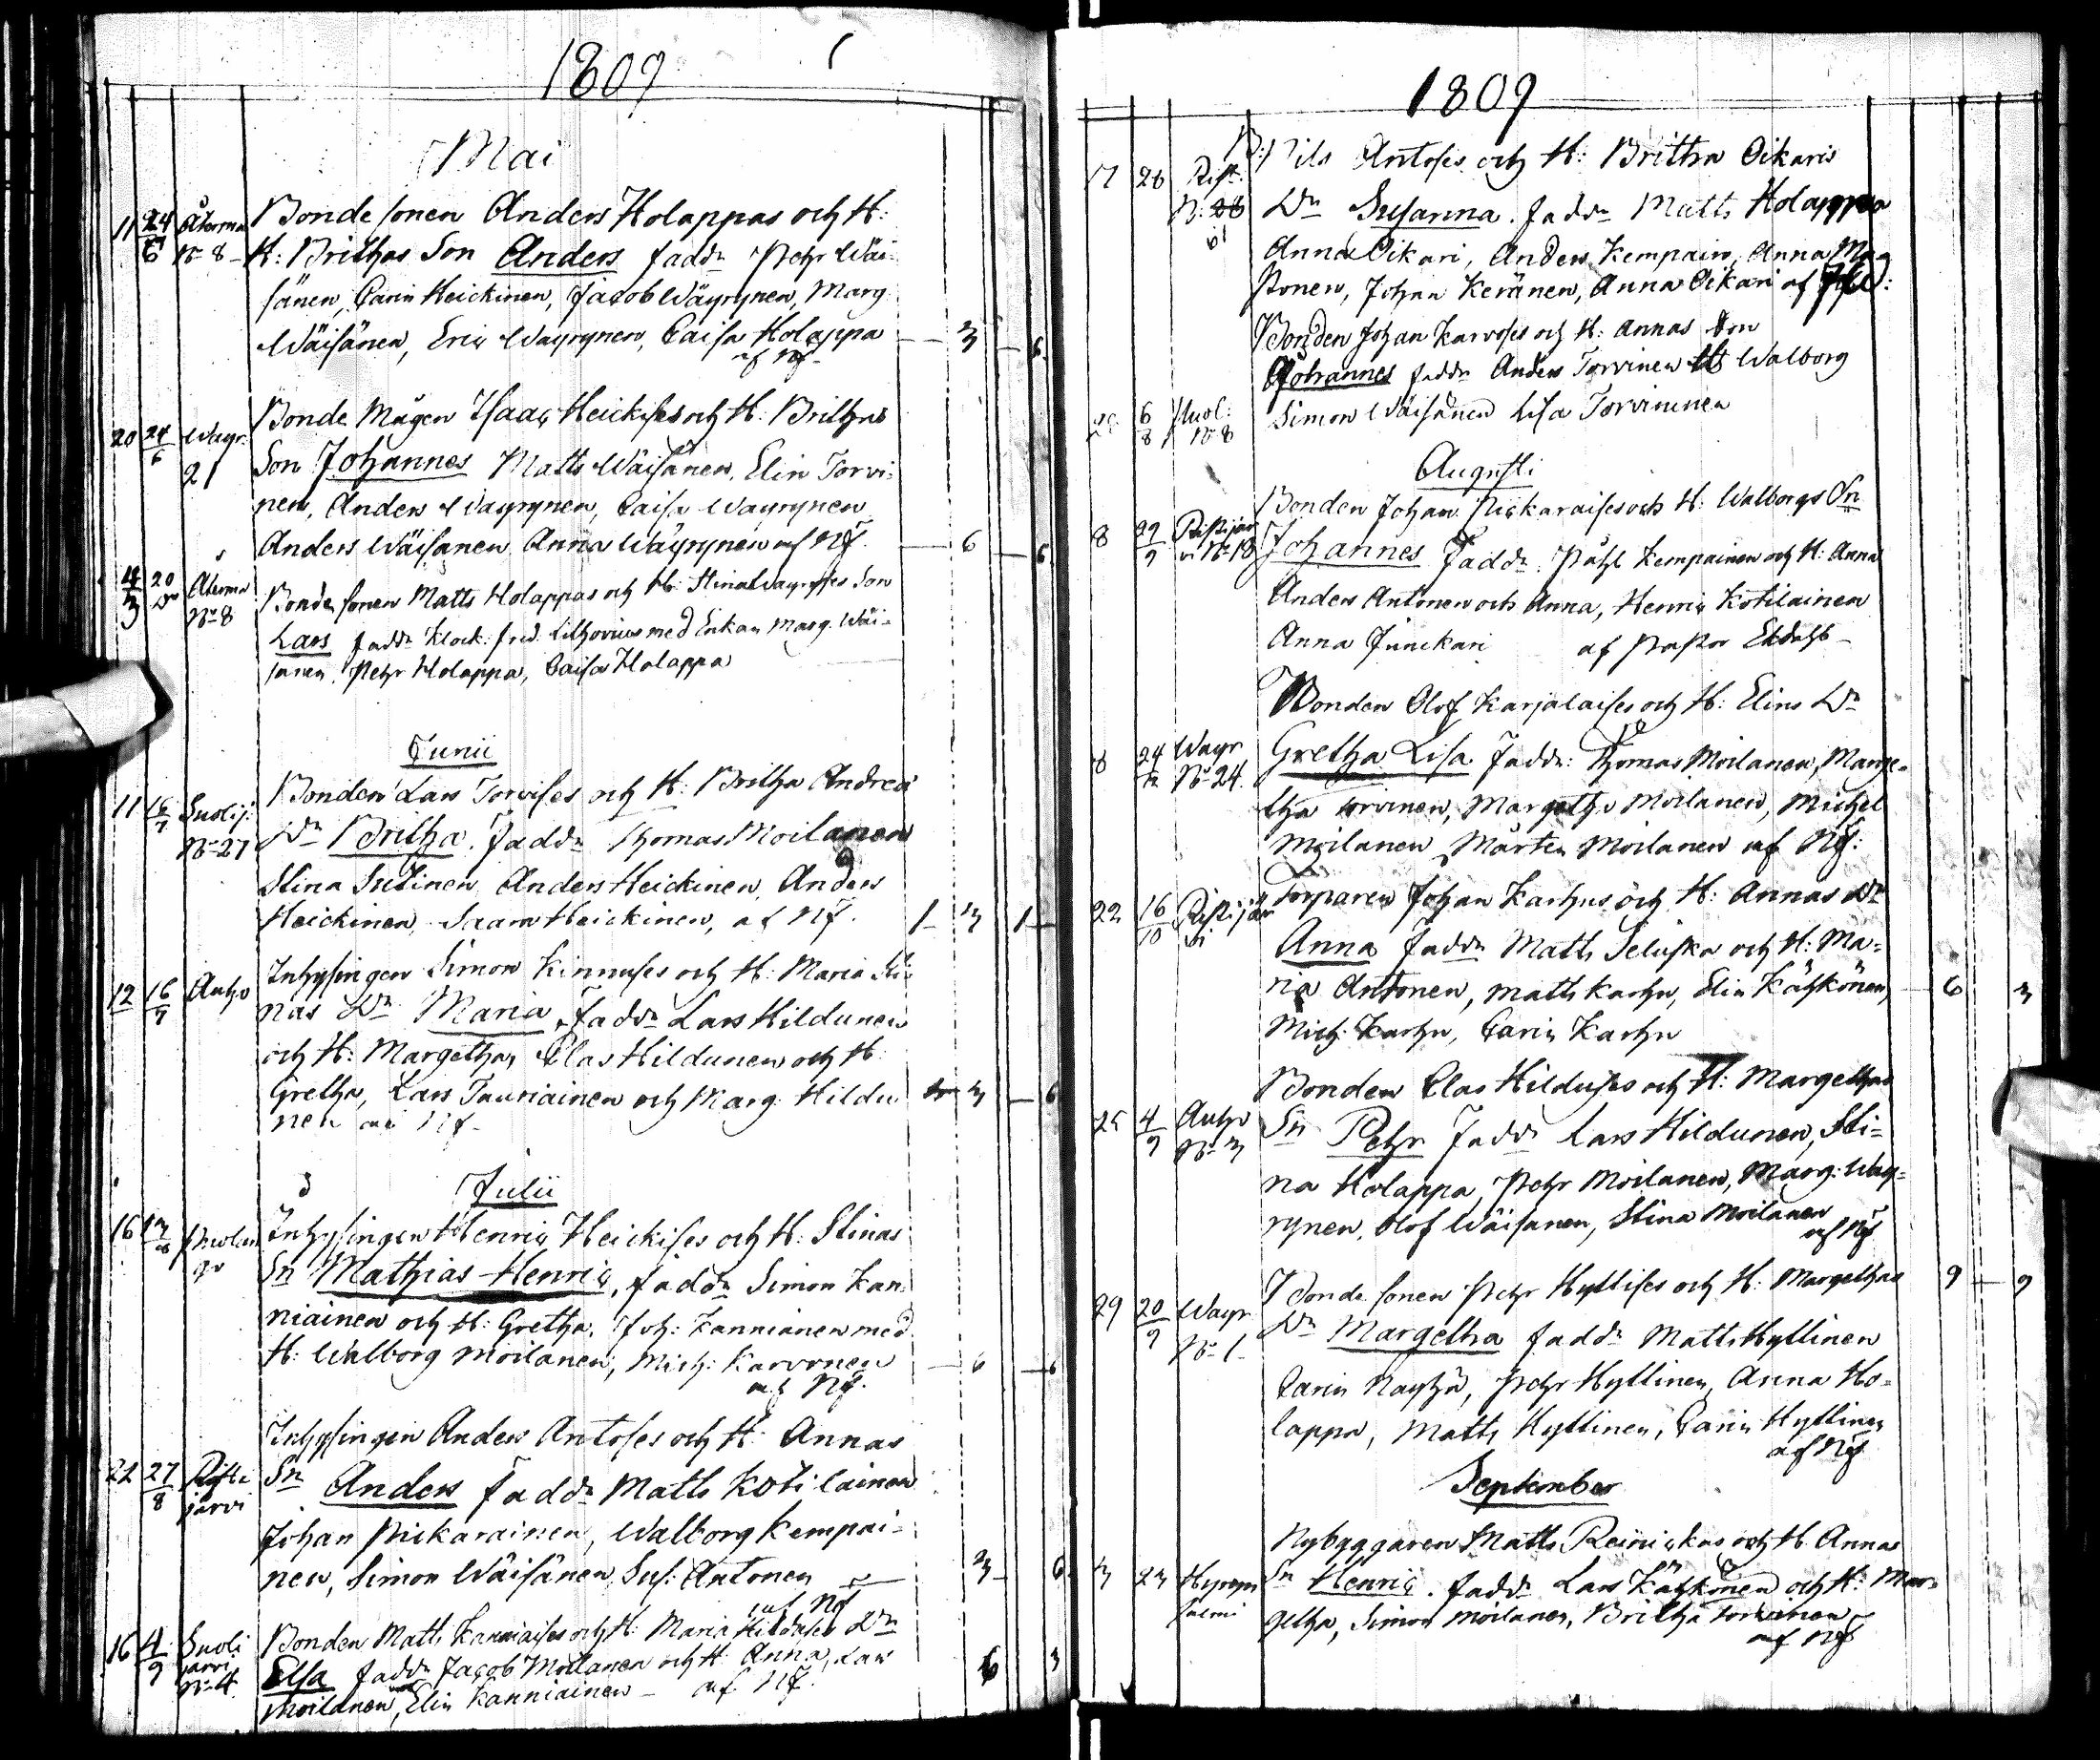 1809
Mai
11 24/6 Åkerma No 8 Bonde sonen Anders Holappas och H:
H: Brithas Son Anders fadd: Pehr Wäi
sänen, Carin Heickinen, Jacob Wäyrynen, Marg
Wäisänen, Eric Wäyrynen, Caisa Holappa 3 6
af Nf
Bonde Mågen Isaac Heickises och H: Brithas
20 24/6 Wäyr. 21 Son Johannes Matts Wäisänen, Elin Torvi-
nen, Anders Wäyrynen, Caisa Wayrynen
Anders Wäisänen Anna Wäyrynen af Nf. 6 6
4/3 20 Akerma No 8 Bonde sonen Matts Holappas och H: Stina Wayryses Son
Lars fadd: Klock: Fred. Lithovius med Enkan Marg. Wäi-
sänen, Pehr Holappa, Caisa Holappa
Junii
11 16/7 Suolij: No 27 Bonden Lars Torvises och H: Britha Andreä
Dr Britha. Fadd: Thomas Moilanen
Stina Sutinen Anders Heickinen, Anders
Heickinen, Saara Heickinen, af Nf. 1 3 1
12 16/7 Autho Inhysingen Simon Kinnuses och H: Maria Sti
nas Dr Maria, Fadd: Lars Hildunen
och H: Margetha, Clas Hildunen och H:
Gretha, Lars Tauriainen och Marg: Hildu 3 6
nen af Nf
Julii
16 13/8 Inhysingen Henric Heickises och H: Stinas
Sn Mathias Henric, fadd: Simon Kan
niainen och H: Gretha, Joh: Kannianen med
H: Walborg Moilanen, Mich: Karvonen 6 6
af Nf.
Inhysingen Anders Antoses och H: Annas
22 27/8 Risti järvi Sn Anders Fadd: Matts Kotilainen
Johan Pickarainen, Walborg Kempai-
nen, Simon Wäisänen, Sus: Antonen 3 6
af Nf
16 4/9 Suoli järvi No 4. Bonden Matts Kanniaises och H: Maria Hilduses Dr
Elsa fadd: Jacob Moilanen och H: Anna, Lars 6 3
Moilanen, Elin Kanniainen af Nf.
1809
17 28 Rist: B: Nils Antoses och H: Britha Oikaris
Dr Susanna. fadd: Matts Holappa
Anna Oikari, Anders Kempain, Anna Mag
stonen, Johan Keränen, Anna Oikari af
Bonden Johan Karvoses och H: Annas Son
Johannes fadd: Anders Torvinen H Walborg
6/8 Suol: No 8 Simon Wäisänen Lisa Torvininen
Augusti
Bonden Johan Pickaraises och H: Walborgs Sn
8 22/9 Ristijär vi No 18 Johannes Fadd: Påhl Kempainen och H: Anna
Anders Antonen och Anna, Henric Kotilainen
Anna Junckari af Pastor Ekdahl
Bonden Olof Karjalaises och H: Elins Dr
8 24 Wayr No 24. Gretha Lisa. Fadd: Thomas Moilanen, Marge-
tha Torvinen, Margetha Moilanen, Michel
Moilanen, Mårten Moilanen af Nf:
22 16/10 Ristijär vi Torparen Johan Karhus och H: Annas Dr
Anna Fadd: Matts Seluska och H: Ma-
ria Antonen, Matts Karhu, Elin Kähkönen, 6 3
Mich: Karhu, Carin Karhu
Bonden Clas Hilduses och H: Margethas
25 4/9 Autho No 3 Sn Pehr Fadd: Lars Hildunen, Sti-
na Holappa, Pehr Moilanen, Marg: Way-
rynen, Olof Wäisanen, Stina Moilanen
af Nf
Bonde sonen Pehr Hyttises och H: Margethas 9 9
29 20/9 Wayr No 1 Dr Margetha Fadd: Matts Hyttinen
Carin Nayhä, Pehr Hyttinen, Anna Ho-
lappa, Matts Hyttinen, Carin Hyttinen
af Nf
September
Nybyggaren Matts Reinickas och H Annas
3 23 Hyryn salmi Sn Henric. Fadd: Lars Kähkönen och H: Mar-
getha, Simon Moilanen, Britha Torvinen
af Nf